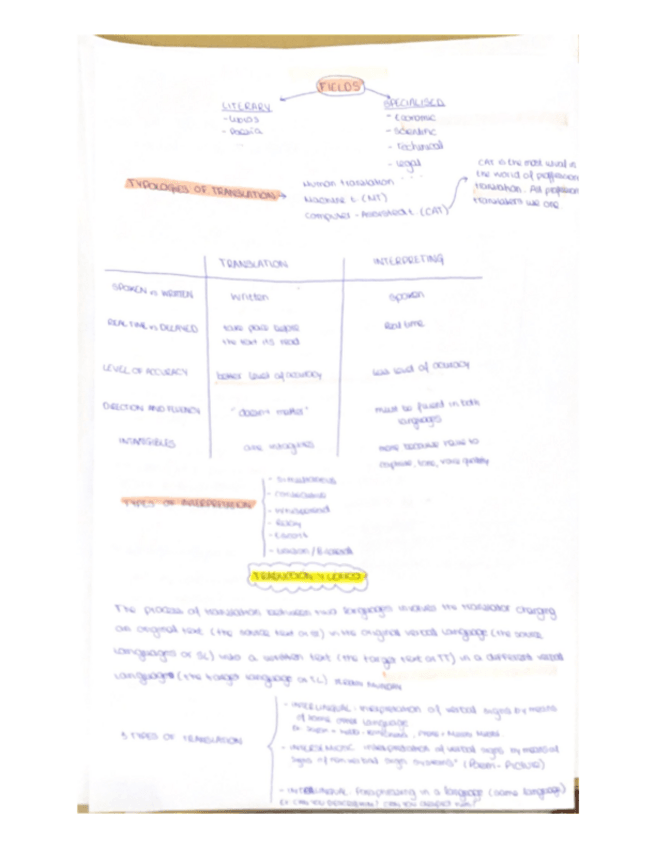 FIELDS
LITERARY
- Libros
- Poesía
SPECIALISED
- Economic
- Scientific
- Technical
- Legal
. . .
TYPOLOGIES OF TRANSLATION
Human translation
Machine t. (MT)
Computer - Assisted t. (CAT)
CAT is the most usual in
the world of profession
translation. All profession
translators use one
TRANSLATION INTERPRETING
SPOKEN vs WRITTEN written spoken
REAL TIME vs DELAYED take place before Real time
the text its read
LEVEL OF ACCURACY better level of accuracy less level of accuracy
DIRECTION AND FLUENCY "doesn't matter" must be fluent in both
languages
INTANGIBLES are intangibles more because have to
tone, voice quality
TYPES OF INTERPRETATION
- Simultaneous
- Consecutive
- Whispered
- Relay
- Liaison / Bilateral
TRADUCCIÓN Y LÉXICO
The process of translation between two languages involves the translator changing
an original text (the source text or ST) in the original verbal language (the source
language or SL) into a written text (the target text or TT) in a different verbal
language (the target language or TL)
3 TYPES OF TRANSLATION
- INTERLINGUAL: interpretation of verbal signs by means
of some other language
- INTERSEMIOTIC: interpretation of verbal signs by means of
signs of non verbal sign systems" (Poem - Picture)
- INTRALINGUAL: Paraphrasing in a language (same language)